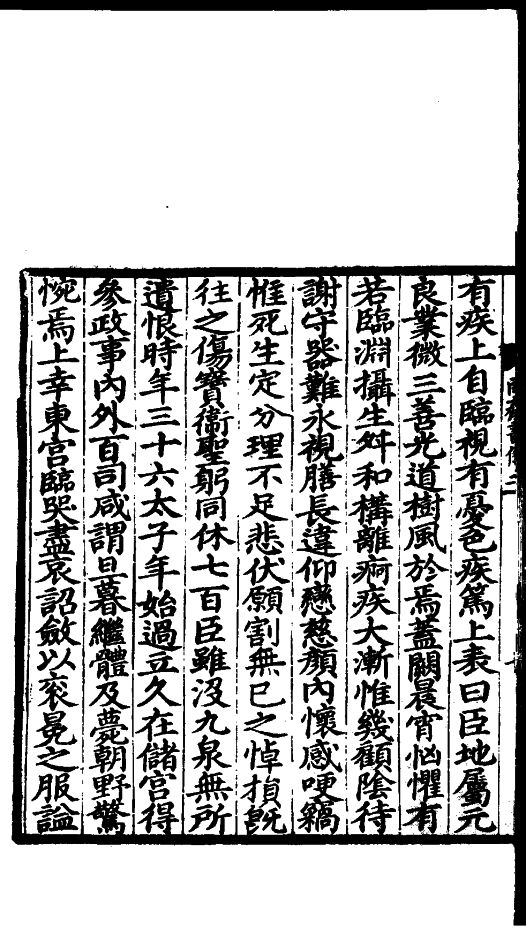 有疾上自臨視有憂色疾篤上表曰臣地屬元
良業微三善光道樹風於焉蓋闕晨宵忷懼有
若臨淵攝生舛和構離痾疾大漸惟幾顧陰待
謝守器難永視膳長違仰戀慈顏內懷感哽竊
惟死生定分理不足悲伏願割無已之悼損既
往之傷寶衞聖躬同休七百臣雖沒九泉無所
遺恨時年三十六太子年始過立久在儲宮得
參政事內外百司咸謂旦暮繼體及薨朝野驚
惋焉上幸東宮臨哭盡哀詔斂以衮冕之服謚